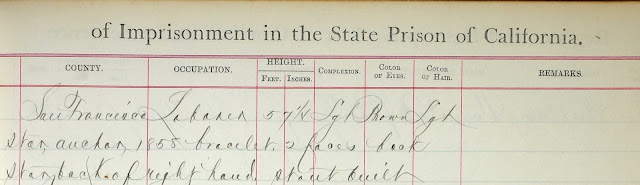 of Imprisonment in the State Prison of California.
COUNTY. OCCUPATION. HEIGHT. FEET. INCHES. COMPLEXION. COLOR OF EYES. COLOR OF HAIR. REMARKS.
San Francisco Laborer 5 7¼ Lgt Brown Lgt
Star, anchor, 1855 bracelet, 2 faces book
Star, back of right hand, stout built